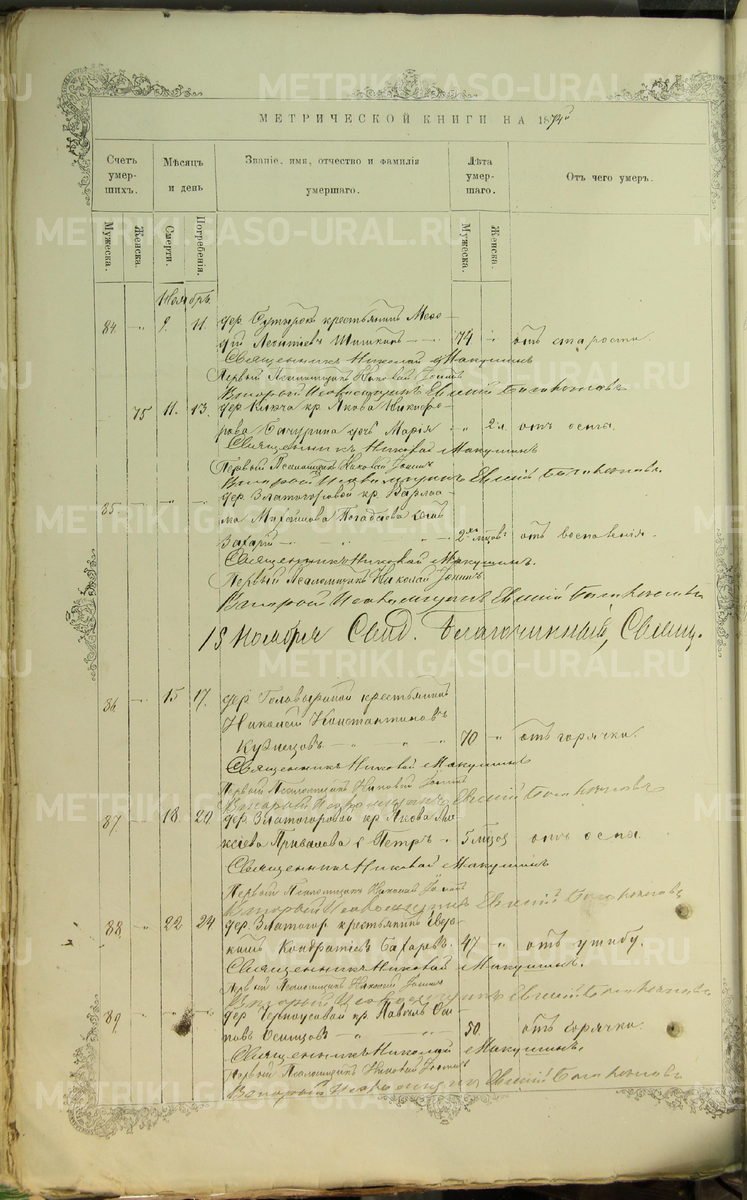 МЕТРИЧЕСКОЙ КНИГИ НА 1874й
Счетъ умер- шихъ.
Мѣсяцъ и день
Званіе, имя, отчество и фамилія умершаго.
Лѣта умер- шаго.
Отъ чего умеръ.
Мужеска. Женска. Смерти. Погребенія. Мужеска. Женска.
Ноябрь
84 " 9. 11. дер. крестьянинъ Меѳо-
дій Леонтьевъ Шишкинъ 74 " отъ старости.
Священникъ Николай Макушинъ
Первый Псаломщикъ Николай
Второй Псаломщикъ Евгеній
75 11. 13. дер. Ключа кр. Якова Никифо-
рова дочь Марія " 2 л. отъ оспы.
Священникъ Николай Макушинъ
Первый Псаломщикъ Николай
Второй Псаломщикъ Евгеній
85 " " " дер. Златогоровой кр. Варлаа-
ма Погадаева сынъ
Захарій 2хъ мѣсяц. отъ воспаленія.
Священникъ Николай Макушинъ.
Первый Псаломщикъ Николай
Второй Псаломщикъ Евгеній
Ноября Свид. Благочинный, Священ.
86 " 15 17. дер. Головыриной крестьянинъ
Николай Константиновъ
Кузнецовъ 70 " отъ горячки.
Священникъ Николай Макушинъ
Первый Псаломщикъ Николай
Второй Псаломщикъ Евгеній
87 " 18 20 дер. Златогоровой кр. Якова Але-
ксѣева Привалова с. Петръ 5 мѣсяц. отъ оспы.
Священникъ Николай Макушинъ
Первый Псаломщикъ Николай
Второй Псаломщикъ Евгеній
88 " 22 24 дер. Златогор. крестьянинъ Евдо-
кимъ Кондратіевъ Бахаревъ. 47 " отъ ушибу.
Священникъ Николай Макушинъ.
Первый Псаломщикъ Николай
Второй Псаломщикъ Евгеній
89 " " дер. Черноусовой кр. Павелъ
Осинцовъ 50 отъ горячки.
Священникъ Николай Макушинъ.
Первый Псаломщикъ Николай
Второй Псаломщикъ Евгеній
METRIKI.GASO-URAL.RU